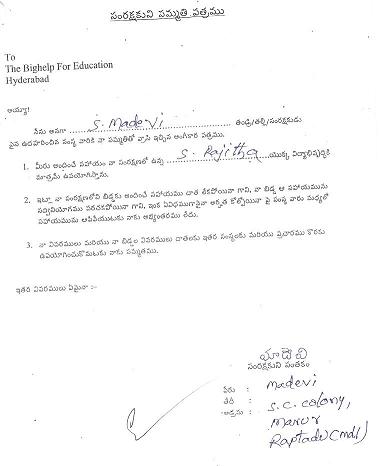 సంరక్షకుని సమ్మతి పత్రము
To
The Bighelp For Education
Hyderabad
అయ్యా!
నేను అనగా S. Madevi తండ్రి/తల్లి/సంరక్షకుడు
పైన ఉదహరించిన సంస్థ వారికి నా సమ్మతితో వ్రాసి ఇచ్చిన అంగీకార పత్రము.
1. మీరు అందించే సహాయం నా సంరక్షణలో ఉన్న S. Rajitha యొక్క విద్యాభివృద్ధికి
మాత్రమే ఉపయోగిస్తాను.
2. ఇట్లా నా సంరక్షణలోని బిడ్డకు అందించే సహాయము దాత లేకపోయినా గాని, నా బిడ్డ ఆ సహాయమును
సద్వినియోగము పరచకపోయినా గాని, ఇంక ఏవిధముగానైనా అర్హత కోల్పోయినా పై సంస్థ వారు మధ్యలో
సహాయమును ఆపివేయుటకు నాకు అభ్యంతరము లేదు.
3. నా వివరములు మరియు నా బిడ్డల వివరములు దాతలకు ఇతర సంస్థలకు మరియు ప్రచారము కొరకు
ఉపయోగించుకొనుటకు నాకు సమ్మతము.
ఇతర వివరములు ఏమైనా :-
మాదెవి
సంరక్షకుని సంతకం
పేరు : Madevi
తేది :
అడ్రసు : S.C. Colony,
Marur
Raptadu (mdl)